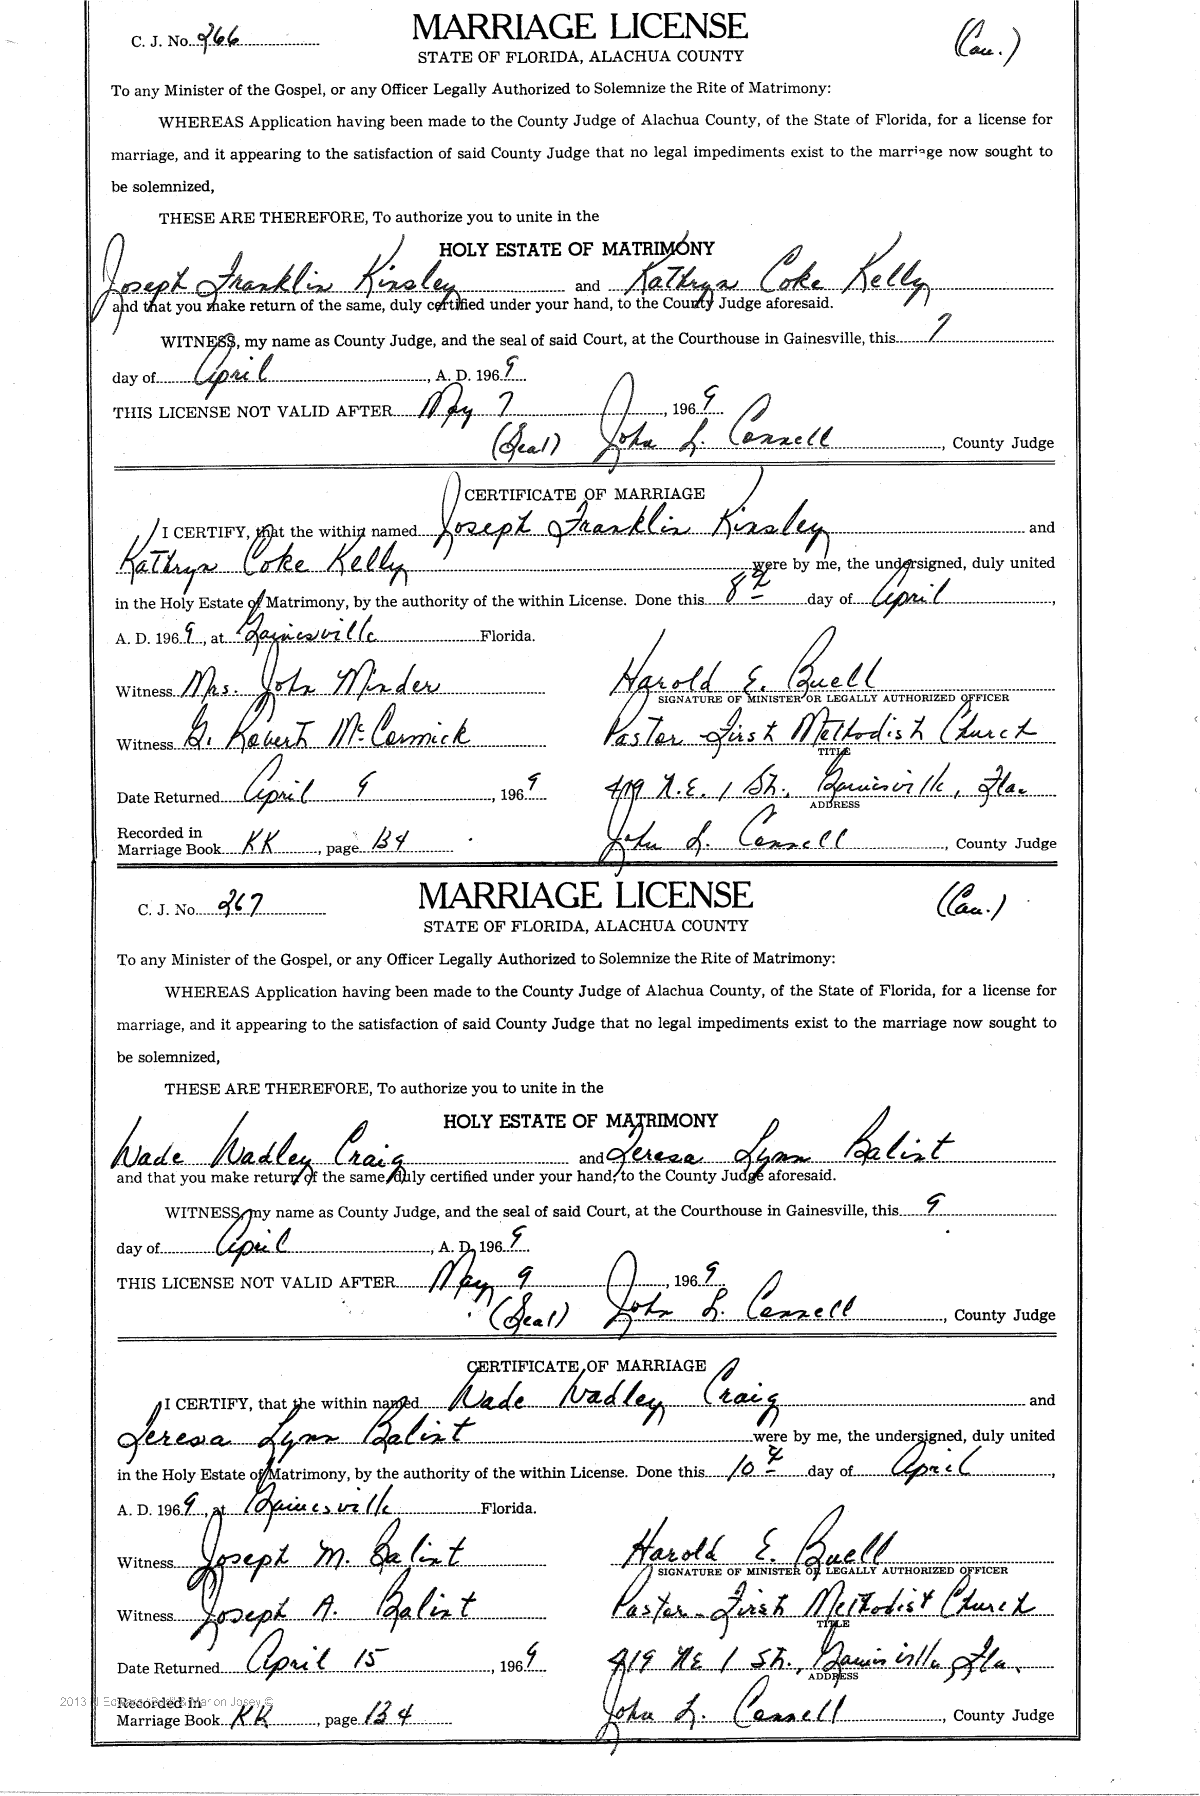 C. J. No. 266
MARRIAGE LICENSE
(Cau.)
STATE OF FLORIDA, ALACHUA COUNTY
To any Minister of the Gospel, or any Officer Legally Authorized to Solemnize the Rite of Matrimony:
WHEREAS Application having been made to the County Judge of Alachua County, of the State of Florida, for a license for
marriage, and it appearing to the satisfaction of said County Judge that no legal impediments exist to the marriage now sought to
be solemnized,
THESE ARE THEREFORE, To authorize you to unite in the
HOLY ESTATE OF MATRIMONY
Joseph Franklin Kinsley and Kathryn Coke Kelly
and that you make return of the same, duly certified under your hand, to the County Judge aforesaid.
WITNESS, my name as County Judge, and the seal of said Court, at the Courthouse in Gainesville, this 7
day of April, A. D. 1969
THIS LICENSE NOT VALID AFTER May 7, 1969
(Seal) John L. Connell, County Judge
CERTIFICATE OF MARRIAGE
I CERTIFY, that the within named Joseph Franklin Kinsley and
Kathryn Coke Kelly were by me, the undersigned, duly united
in the Holy Estate of Matrimony, by the authority of the within License. Done this 8th day of April,
A. D. 1969, at Gainesville Florida.
Witness Mrs. John Minder
Harold E. Buell
SIGNATURE OF MINISTER OR LEGALLY AUTHORIZED OFFICER
Witness G. Robert McCormick
Pastor First Methodist Church
TITLE
Date Returned April 9, 1969
419 N.E. 1 St., Gainesville, Fla.
ADDRESS
Recorded in
Marriage Book KK, page 134
John L. Connell, County Judge
C. J. No. 267
MARRIAGE LICENSE
(Cau.)
STATE OF FLORIDA, ALACHUA COUNTY
To any Minister of the Gospel, or any Officer Legally Authorized to Solemnize the Rite of Matrimony:
WHEREAS Application having been made to the County Judge of Alachua County, of the State of Florida, for a license for
marriage, and it appearing to the satisfaction of said County Judge that no legal impediments exist to the marriage now sought to
be solemnized,
THESE ARE THEREFORE, To authorize you to unite in the
HOLY ESTATE OF MATRIMONY
Wade Wadley Craig and Teresa Lynn Balint
and that you make return of the same, duly certified under your hand, to the County Judge aforesaid.
WITNESS, my name as County Judge, and the seal of said Court, at the Courthouse in Gainesville, this 9
day of April, A. D. 1969
THIS LICENSE NOT VALID AFTER May 9, 1969
(Seal) John L. Connell, County Judge
CERTIFICATE OF MARRIAGE
I CERTIFY, that the within named Wade Wadley Craig and
Teresa Lynn Balint were by me, the undersigned, duly united
in the Holy Estate of Matrimony, by the authority of the within License. Done this 10th day of April,
A. D. 1969, at Gainesville Florida.
Witness Joseph M. Balint
Harold E. Buell
SIGNATURE OF MINISTER OR LEGALLY AUTHORIZED OFFICER
Witness Joseph A. Balint
Pastor First Methodist Church
TITLE
Date Returned April 15, 1969
419 NE 1 St., Gainesville, Fla.
ADDRESS
Recorded in
Marriage Book KK, page 134
John L. Connell, County Judge
2013